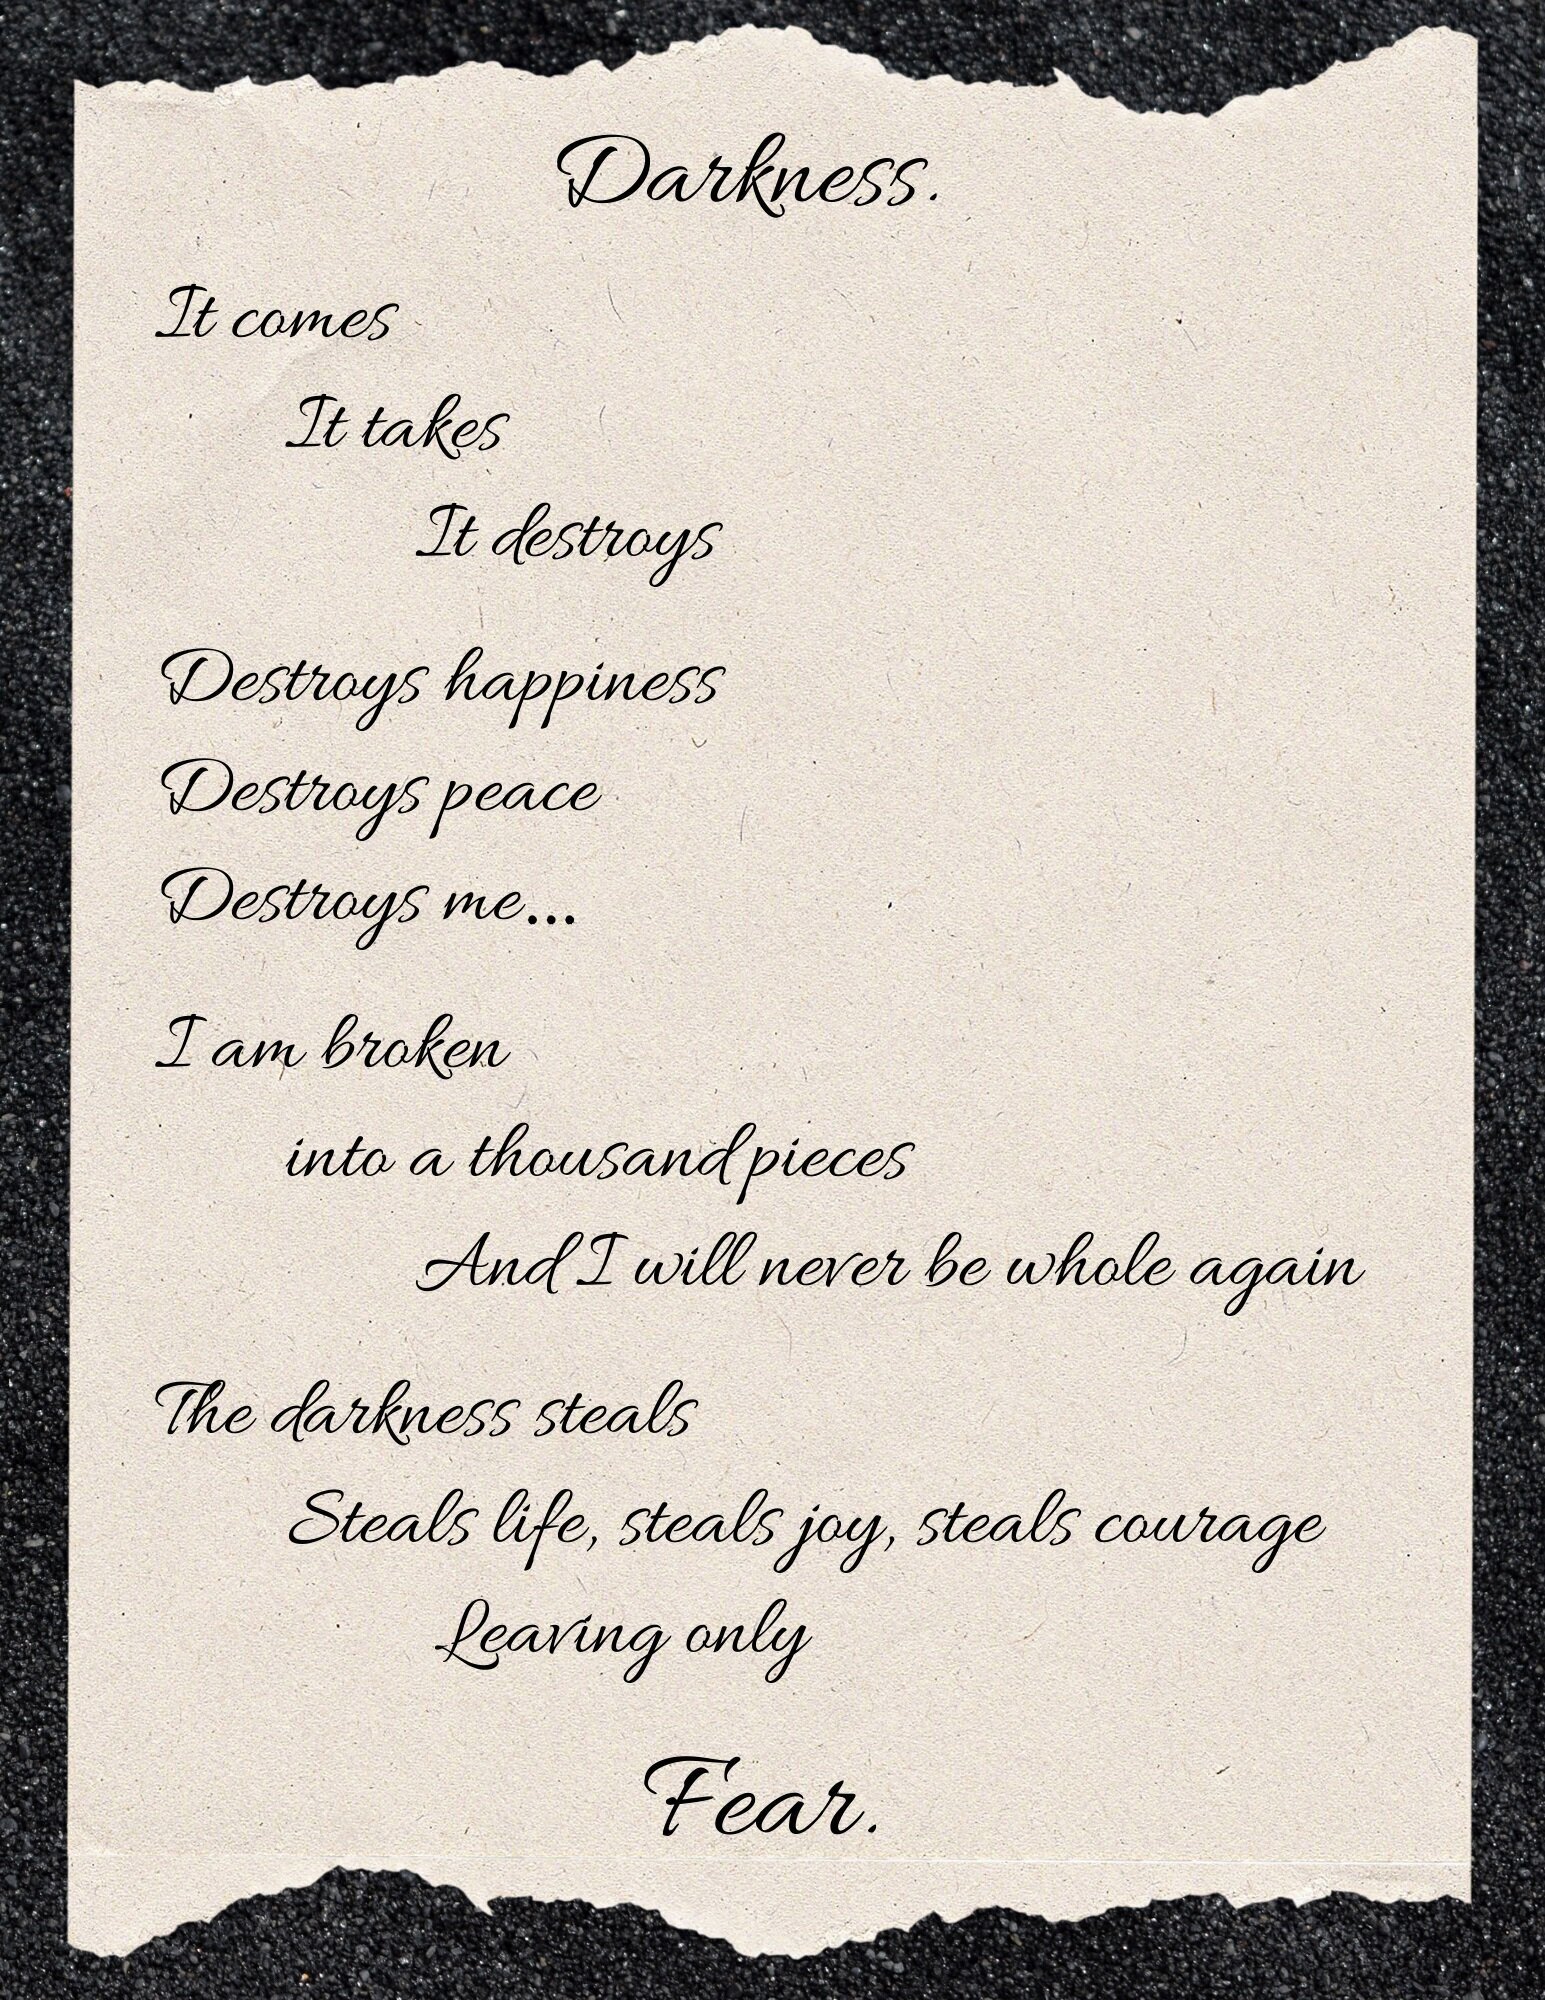 Darkness.
It comes
It takes
It destroys
Destroys happiness
Destroys peace
Destroys me...
I am broken
into a thousand pieces
And I will never be whole again
The darkness steals
Steals life, steals joy, steals courage
Leaving only
Fear.